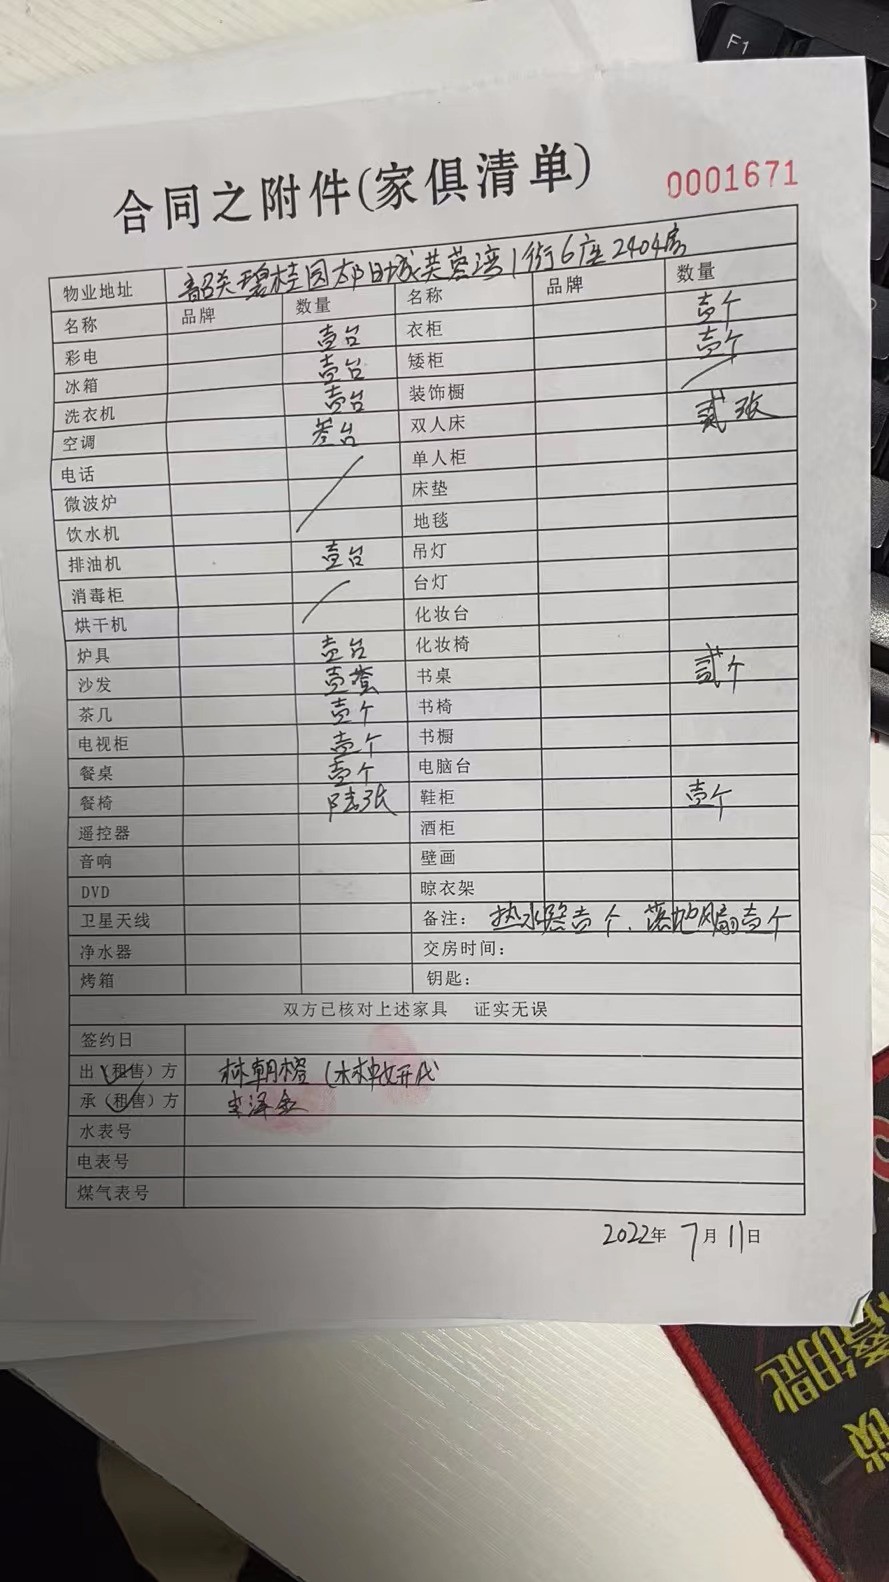 合同之附件(家俱清单) 0001671
物业地址 韶关碧桂园太阳城芙蓉湾1街6座2404房
名称 品牌 数量 名称 品牌 数量
彩电 壹台 衣柜 壹个
冰箱 壹台 矮柜 壹个
洗衣机 壹台 装饰橱
空调 叁台 双人床 贰张
电话 单人柜
微波炉 床垫
饮水机 地毯
排油机 壹台 吊灯
消毒柜 台灯
烘干机 化妆台
炉具 壹台 化妆椅
沙发 壹套 书桌 贰个
茶几 壹个 书椅
电视柜 壹个 书橱
餐桌 壹个 电脑台
餐椅 陆张 鞋柜 壹个
遥控器 酒柜
音响 壁画
DVD 晾衣架
卫星天线 备注: 热水器壹个、落地风扇壹个
净水器 交房时间:
烤箱 钥匙:
双方已核对上述家具 证实无误
签约日
出(租售)方 林朝橙
承(租售)方 泽金
水表号
电表号
煤气表号
2022年7月11日
F1